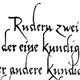 Rudern zwei
der eine kundig
der andere kundig